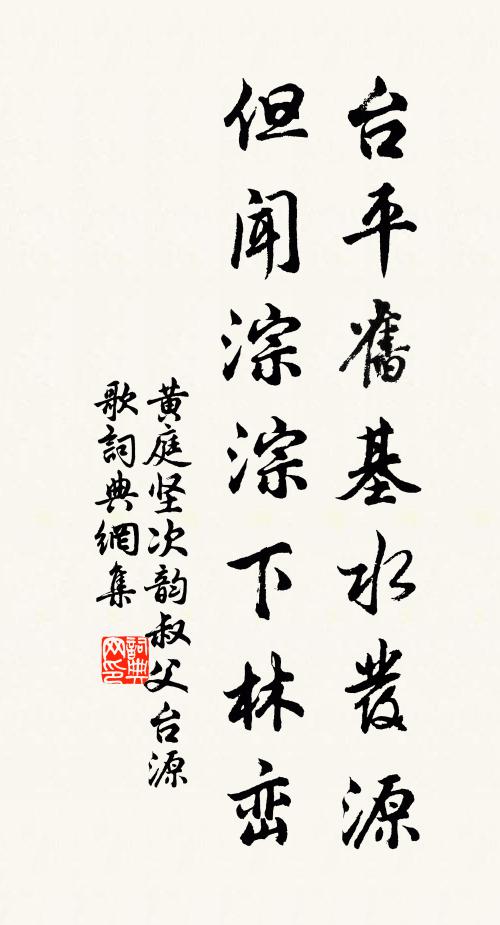 台平舊基水發源
但聞淙淙下林峦
黄庭坚次韵叔父台源
歌詞典網集
詞典网印